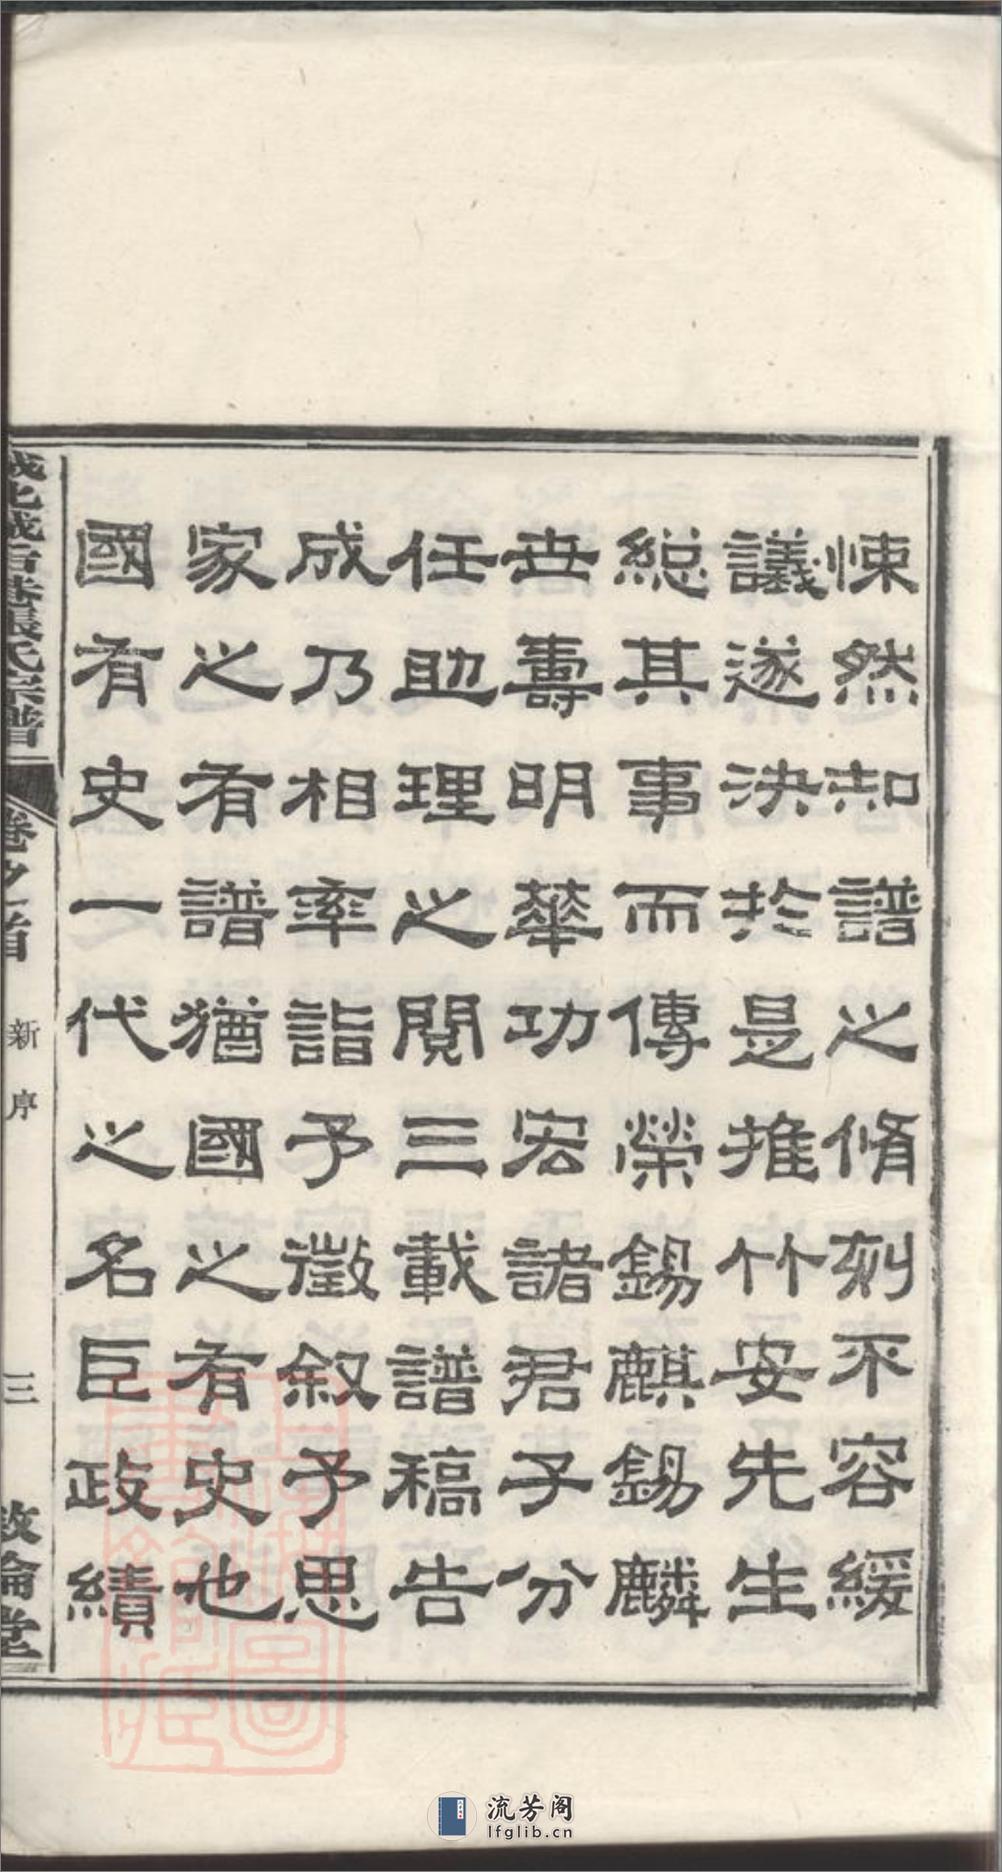 悚然知譜之脩刻不容緩
議遂決於是推竹安先生
總其事而傳榮錫麒錫麟
世壽明華功宏諸君子分
任助理之閱三載譜稿告
成乃相率詣予徵敘予思
家之有譜猶國之有史也
國有史一代之名臣政績
張氏宗譜
卷之首
新序
三
敦倫堂
流芳阁
lfglib.cn